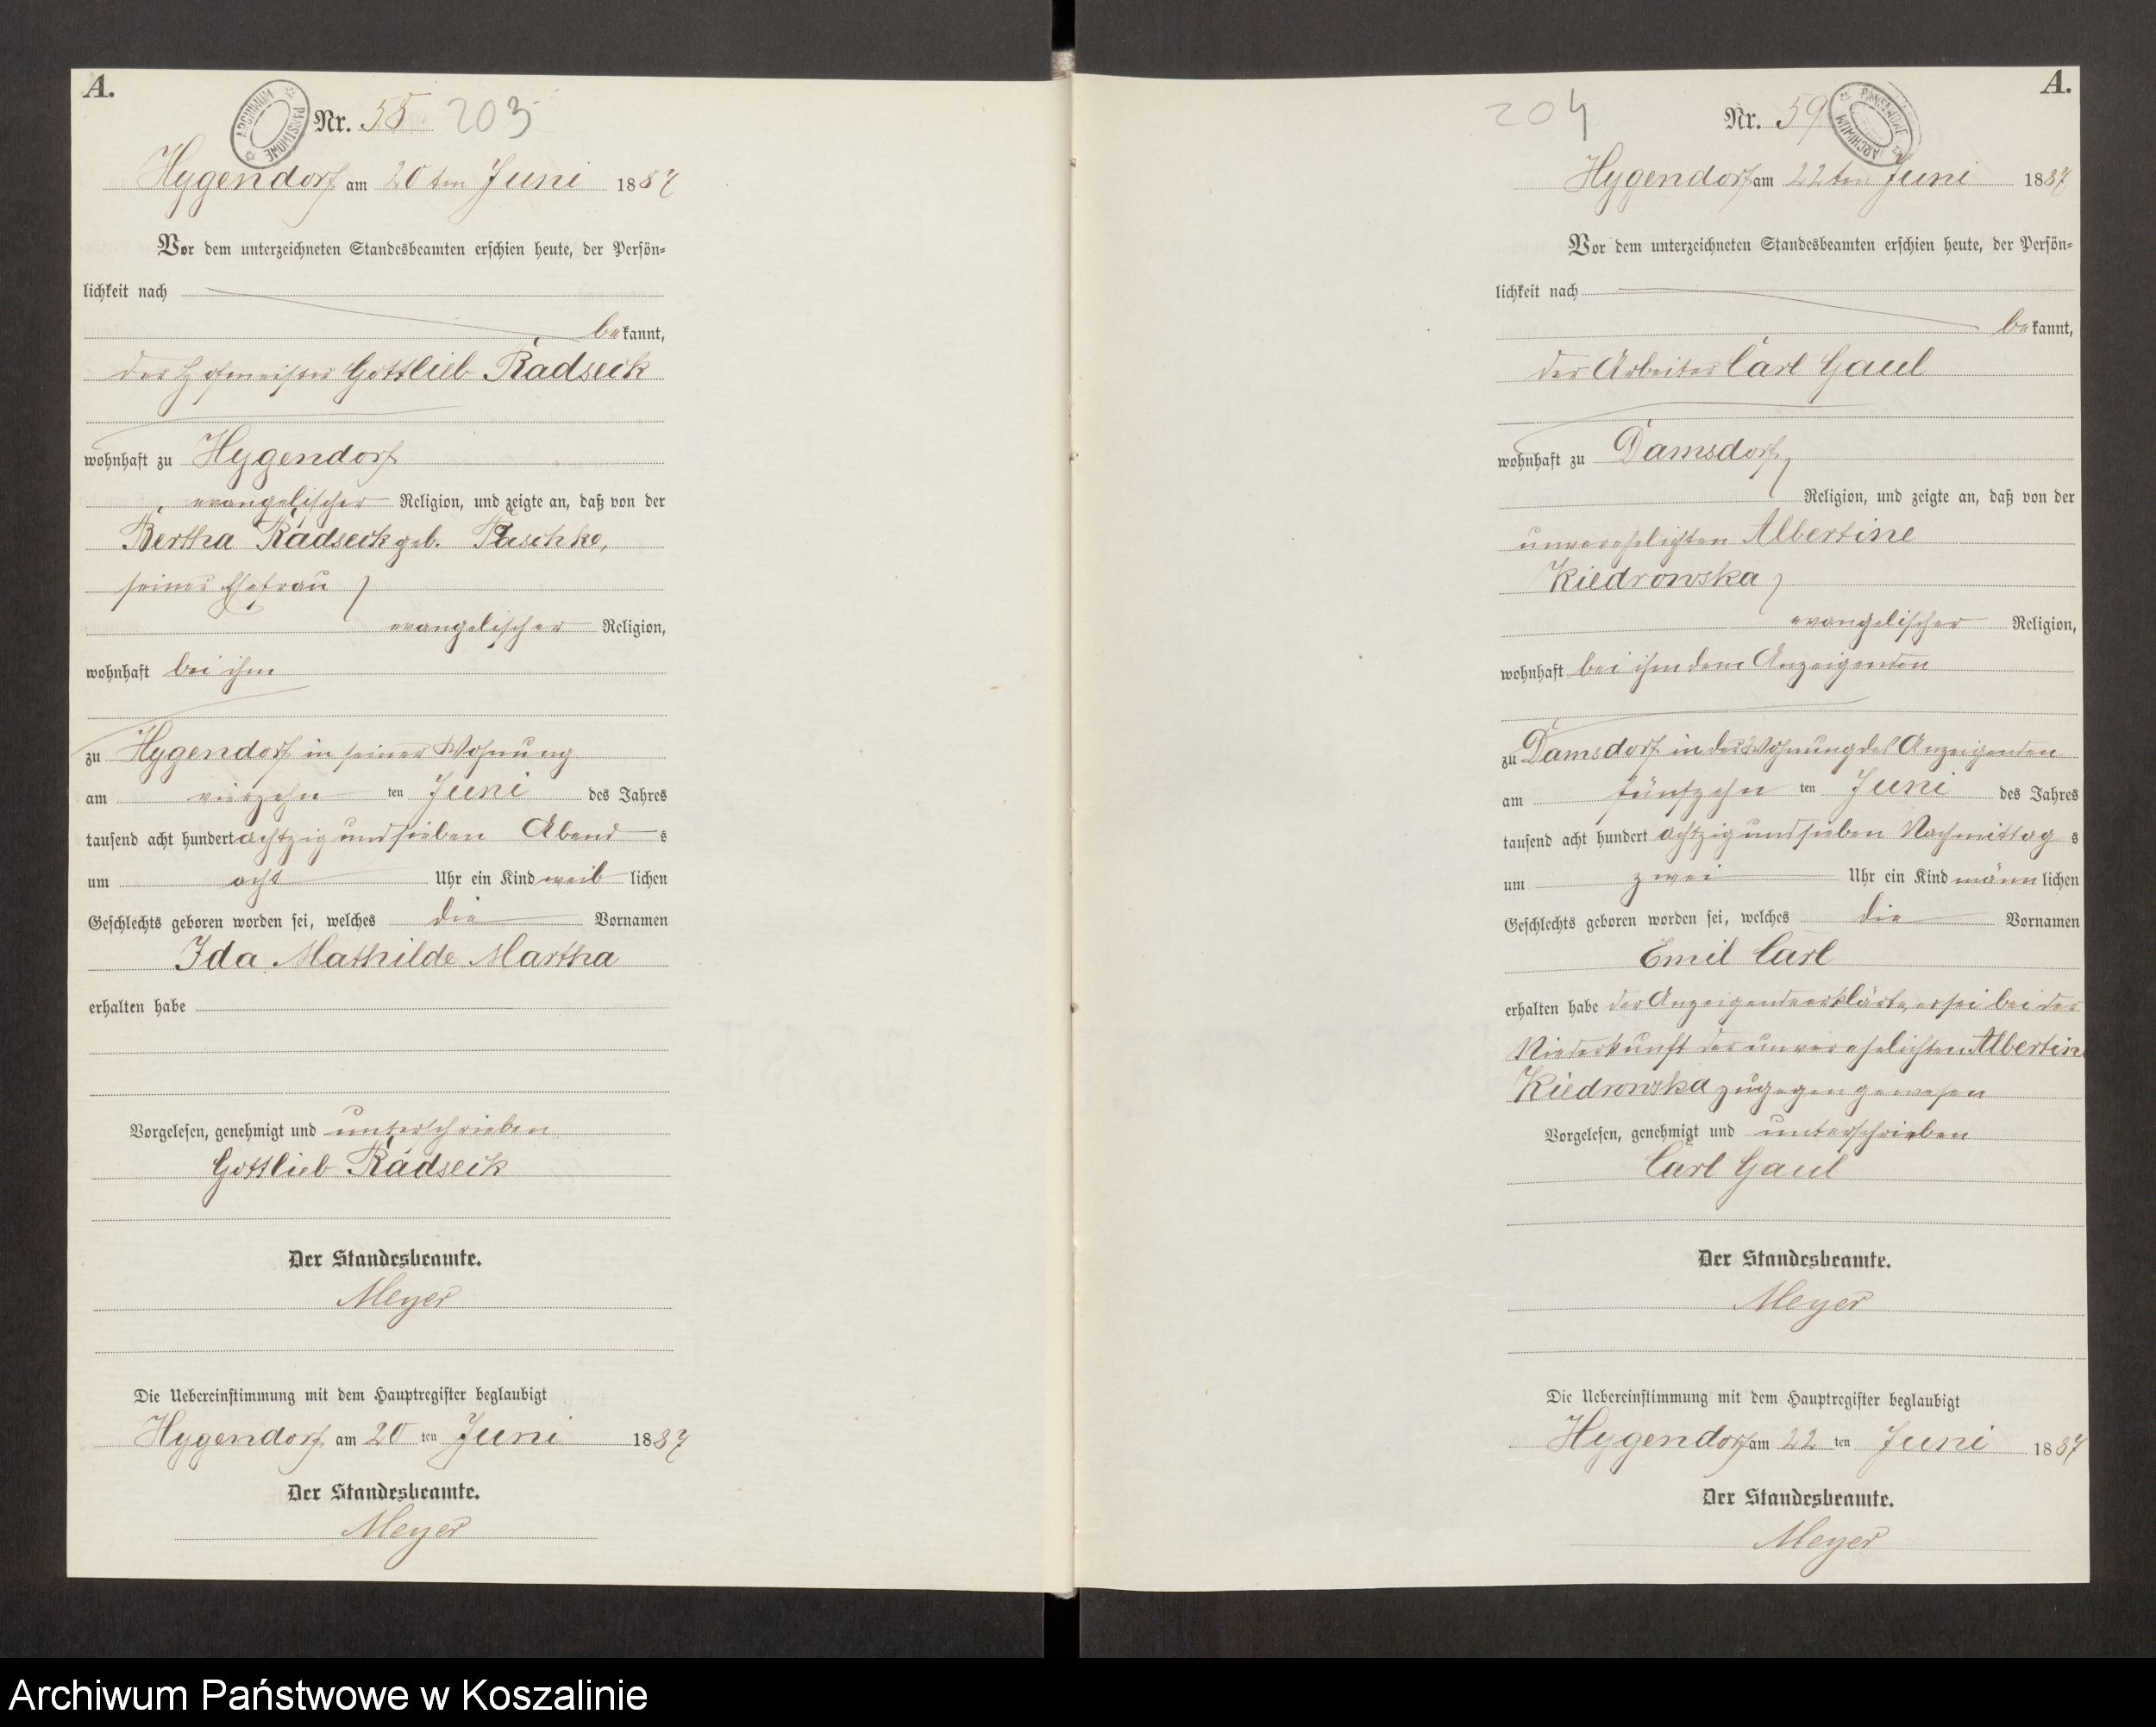 A.
ARCHIWUM PAŃSTWOWE
Nr. 58 203
Hygendorf am 20ten Juni 1887
Vor dem unterzeichneten Standesbeamten erschien heute, der Persön-
lichkeit nach
bekannt,
der Hofmeister Gottlieb Radseck
wohnhaft zu Hygendorf
evangelischer Religion, und zeigte an, daß von der
Bertha Radseck geb. Paschke,
seiner Ehefrau
evangelischer Religion,
wohnhaft bei ihm
zu Hygendorf in seiner Wohnung
am vierzehn ten Juni des Jahres
tausend acht hundert achtzig und sieben Abend s
um acht Uhr ein Kind weib lichen
Geschlechts geboren worden sei, welches die Vornamen
Ida Mathilde Martha
erhalten habe
Vorgelesen, genehmigt und unterschrieben
Gottlieb Radseck
Der Standesbeamte.
Meyer
Die Uebereinstimmung mit dem Hauptregister beglaubigt
Hygendorf am 20 ten Juni 1887
Der Standesbeamte.
Meyer
A.
204 Nr. 59
ARCHIWUM PAŃSTWOWE
Hygendorf am 22ten Juni 1887
Vor dem unterzeichneten Standesbeamten erschien heute, der Persön-
lichkeit nach
bekannt,
der Arbeiter Carl Gaul
wohnhaft zu Damsdorf,
Religion, und zeigte an, daß von der
unverehelichten Albertine
Kiedrowska,
evangelischer Religion,
wohnhaft bei ihm dem Anzeigenden
zu Damsdorf in der Wohnung des Anzeigenden
am fünfzehn ten Juni des Jahres
tausend acht hundert achtzig und sieben Nachmittag s
um zwei Uhr ein Kind männ lichen
Geschlechts geboren worden sei, welches die Vornamen
Emil Carl
erhalten habe der Anzeigende erklärte, er sei bei der
Niederkunft der unverehelichten Albertine
Kiedrowska zugegen gewesen
Vorgelesen, genehmigt und unterschrieben
Carl Gaul
Der Standesbeamte.
Meyer
Die Uebereinstimmung mit dem Hauptregister beglaubigt
Hygendorf am 22 ten Juni 1887
Der Standesbeamte.
Meyer
Archiwum Państwowe w Koszalinie